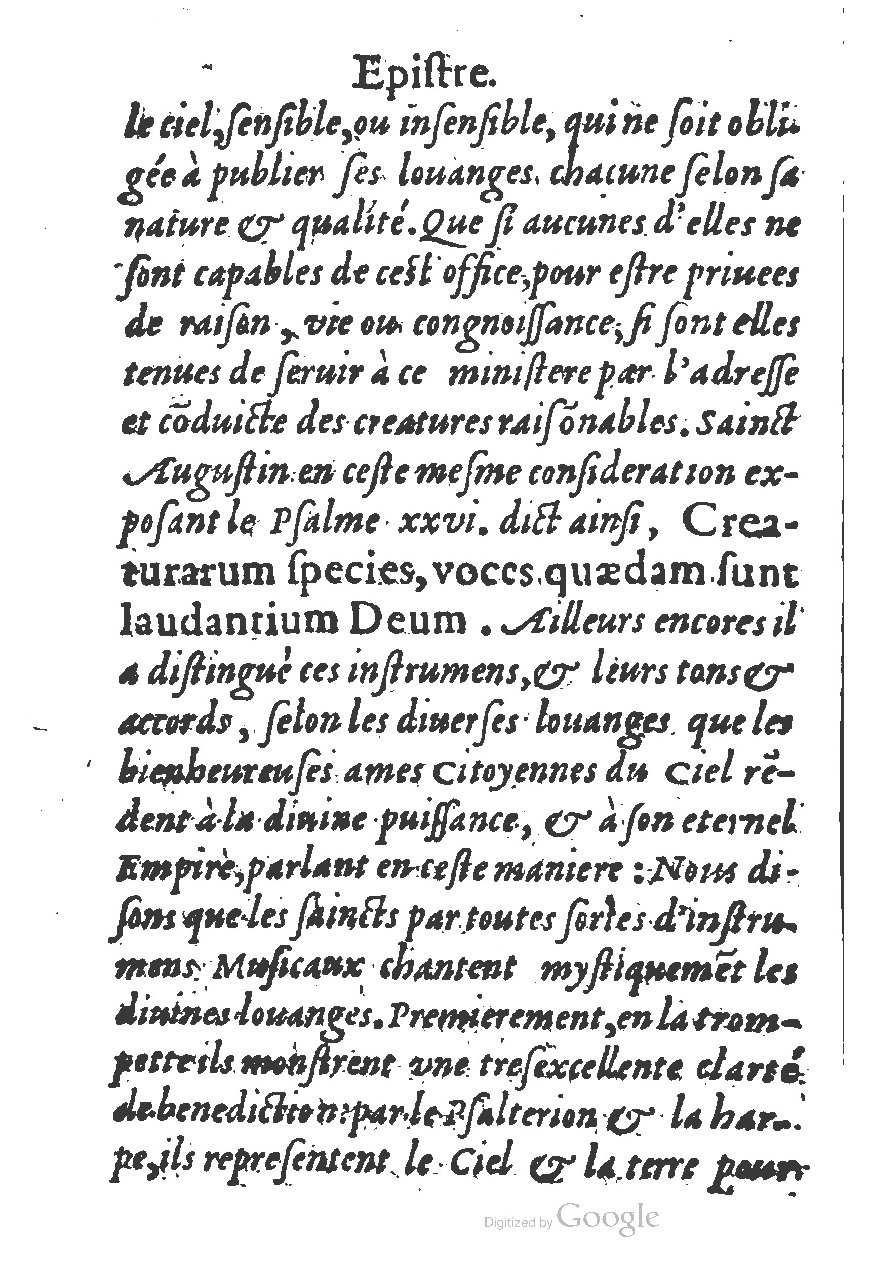 Epiſtre.
le ciel, ſenſible, ou inſenſible, qui ne ſoit obli-
gée à publier ſes louanges. chacune ſelon ſa
nature & qualité. Que ſi aucunes d'elles ne
ſont capables de ceſt office, pour eſtre priuees
de raiſon, vie ou congnoiſſance, ſi ſont elles
tenues de ſeruir à ce miniſtere par l'adreſſe
et cõduicte des creatures raiſõnables. Sainct
Auguſtin en ceſte meſme conſideration ex-
poſant le Pſalme xxvi. dict ainſi, Crea-
turarum ſpecies, voces quædam ſunt
laudantium Deum. Ailleurs encores il
a diſtingué ces inſtrumens, & leurs tons &
accords, ſelon les diuerſes louanges que les
bienheureuſes ames Citoyennes du Ciel rẽ-
dent à la diuine puiſſance, & à ſon eternel
Empire, parlant en ceſte maniere : Nous di-
ſons que les ſaincts par toutes ſortes d'inſtru-
mens Muſicaux chantent myſtiquemẽt les
diuines louanges. Premierement, en la trom-
pette ils monſtrent vne treſexcellente clarté
de benediction: par le Pſalterion & la har-
pe, ils repreſentent le Ciel & la terre pour
Digitized by Google